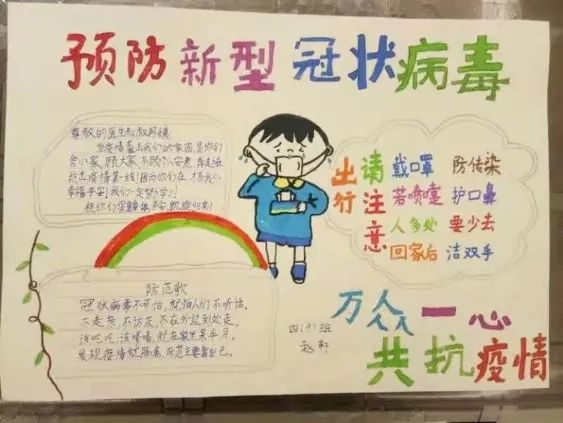 预防新型冠状病毒
尊敬的医生和叔叔阿姨
舍小家,顾大家,不顾个人安危,奔走在
抗击疫情第一线!因为你们在,才有我们
幸福平安!我们一定努力学习!
祝你们 身体平安,凯旋归来!
出行
请注意
戴口罩 防传染
若喷嚏 护口鼻
人多处 要少去
回家后 洁双手
防范歌
冠状病毒不可怕,就怕人们不听话。
不走亲,不访友,不在外边到处走。
该吃吃,该喝喝,蹲在家里呆半月。
发现疫情就隔离,防范主要靠自己。
四(9)班
赵轩
万众一心
共抗疫情